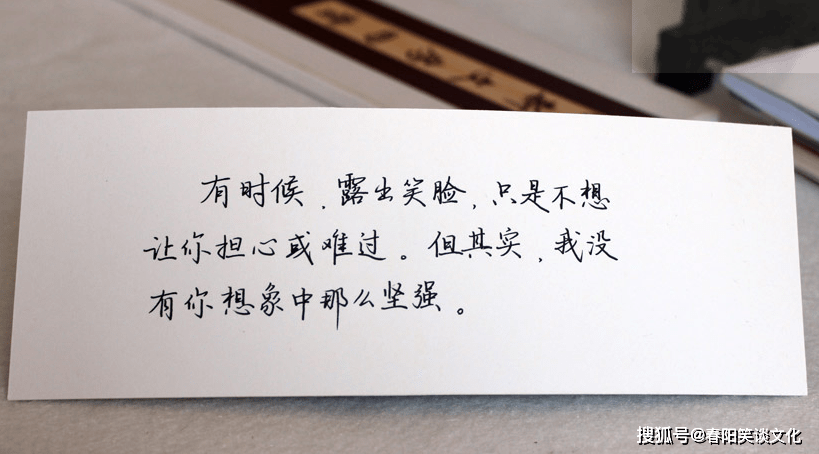 有时候，露出笑脸，只是不想
让你担心或难过。但其实，我没
有你想象中那么坚强。
搜狐号@春阳笑谈文化